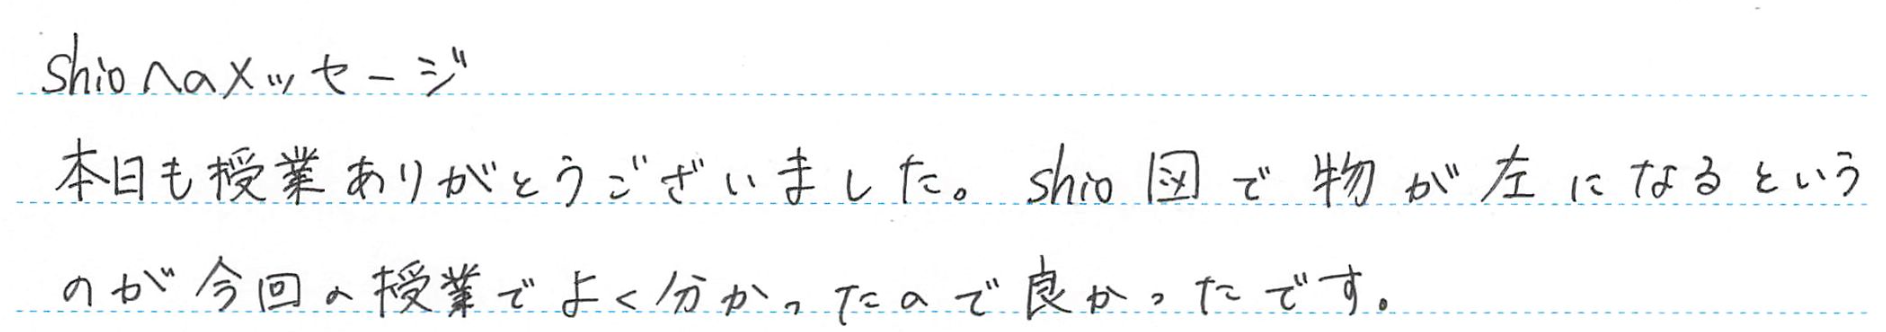 shioへのメッセージ
本日も授業ありがとうございました。shio図で物が左になるという
のが今回の授業でよく分かったので良かったです。